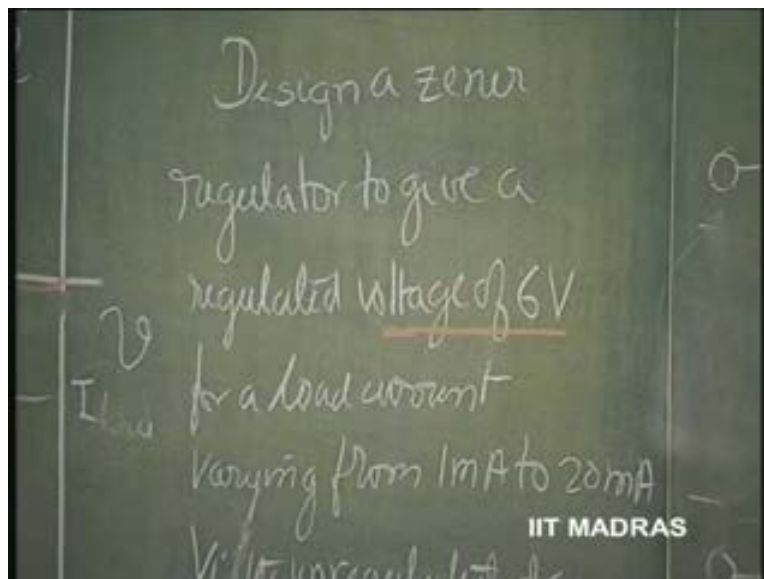 Design a zener
regulator to give a
regulated voltage of 6V
for a load current
varying from 1mA to 20mA
IIT MADRAS